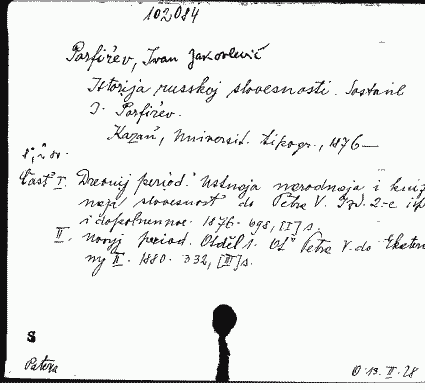 102084
Porfir'ev, Ivan Jakovlevič
Istorija russkoj slovesnosti. Sostavil
I. Porfir'ev.
Kazań, Universit. tipogr., 1876—
8°.
Časť I. Drevnij period. Ustnaja narodnaja i kniž
naja slovesnost do Petra V. Izd. 2-e isp
i dopolnennoe. 1876. 698, [II] s.
II. novyj period. Otděl 1. Ot Petra V. do Ekateri
ny II. 1880. 332, [III] s.
S
Patera
O 13. II. 28